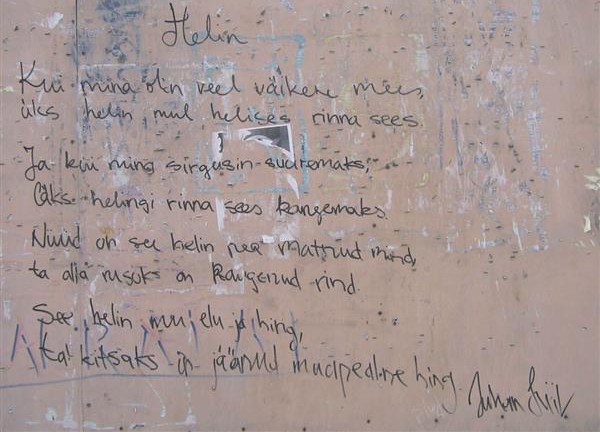 Helin
Kui mina olin veel väikene mees,
üks helin mul helises rinna sees.
Ja kui mina sirgusin suuremaks,
läks helingi rinna sees kangemaks.
Nüüd on see helin pea matnud mind,
ta alla rusuks on kangenud rind.
See helin mu elu ja hing,
tal kitsaks on jäänud maapealne hing.
Juhan Liiv